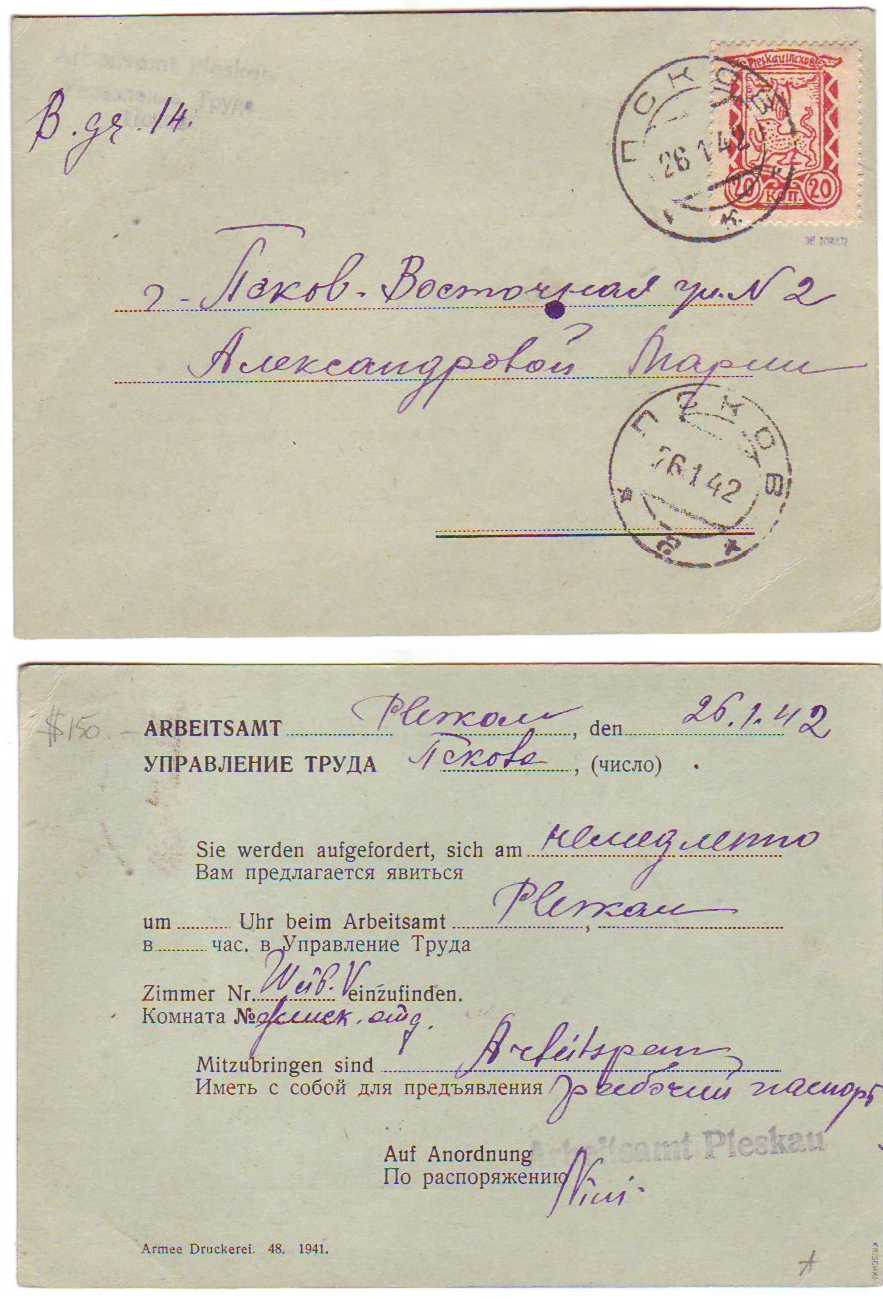 Arbeitsamt Pleskau
Управление Труда
B. gr. 14.
ПСКОВ
26 1 42
Pleskau Псков
20 коп. 20
г. Псков. Восточная ул. N 2
Александровой Марии
ПСКОВ
26 1 42
$150.-
ARBEITSAMT Pleskau, den 26.1.42
УПРАВЛЕНИЕ ТРУДА Пскова, (число)
Sie werden aufgefordert, sich am немедленно
Вам предлагается явиться
um Uhr beim Arbeitsamt Pleskau,
в час. в Управление Труда
Zimmer Nr. Weib. V einzufinden.
Комната № женск. отд.
Mitzubringen sind Arbeitspass
Иметь с собой для предъявления рабочий паспорт
Arbeitsamt Pleskau
Auf Anordnung
По распоряжению
Armee Druckerei. 48. 1941.